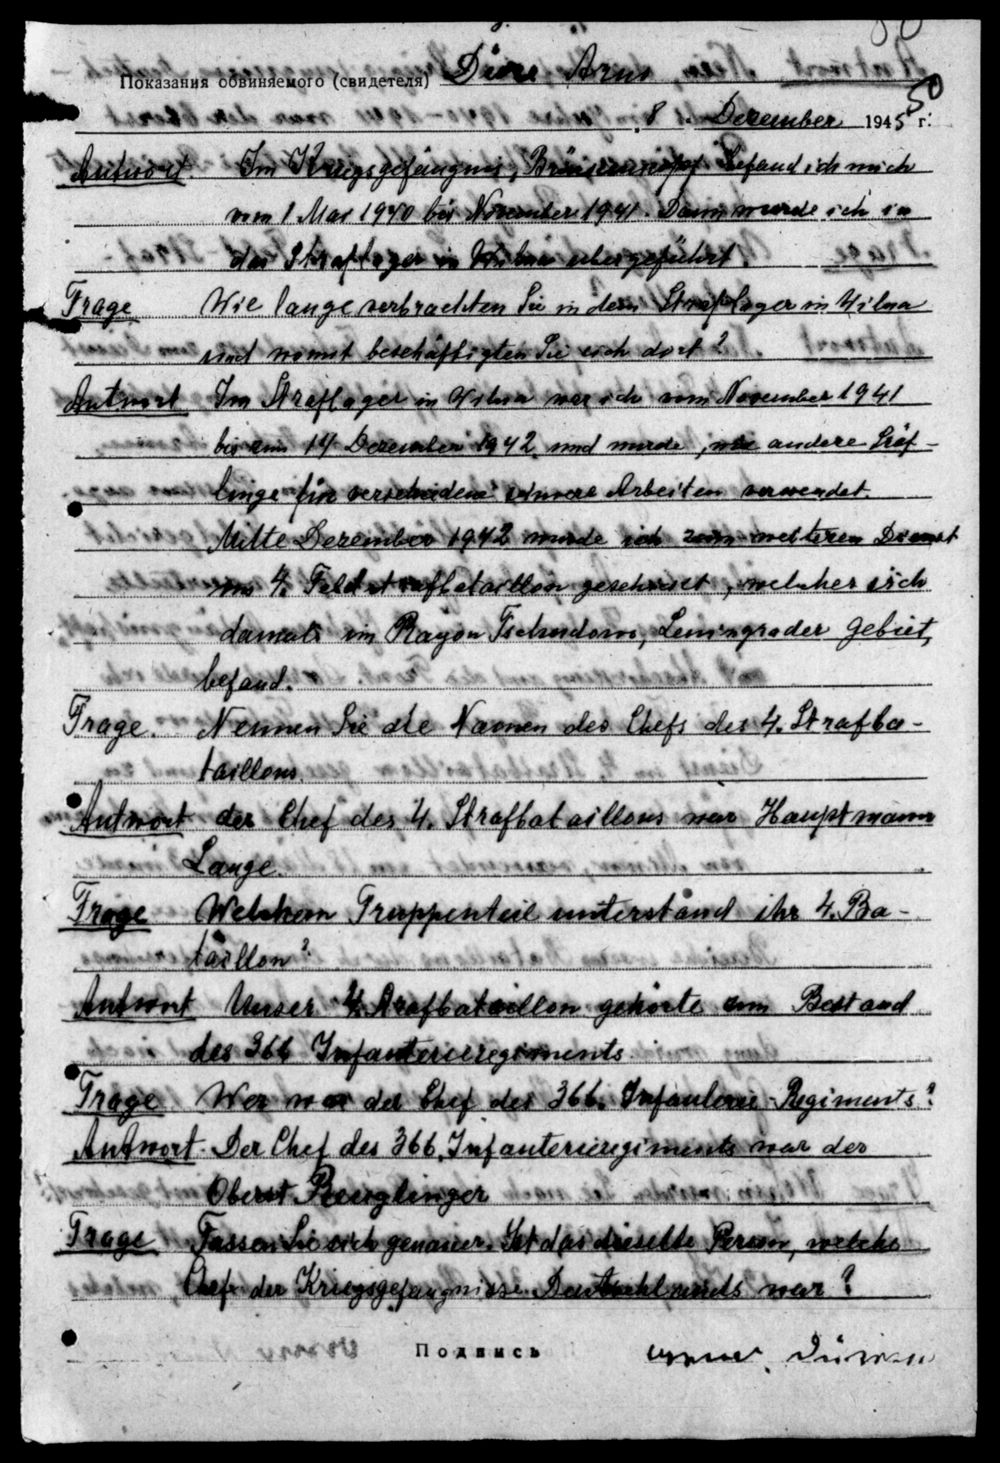 50
Показания обвиняемого (свидетеля) Düre Arno
8 Dezember 1945 г.
Antwort Im Kriegsgefängnis, befand ich mich
vom 1 Mai 1940 bis November 1941. Dann wurde ich in
das Straflager in Wilna übergeführt.
Frage Wie lange verbrachten Sie in dem Straflager in Wilna
und womit beschäftigten Sie sich dort?
Antwort Im Straflager in Wilna war ich vom November 1941
bis zum 14 Dezember 1942 und wurde, wie andere Sträf-
linge für verschiedene schwere Arbeiten verwendet.
Mitte Dezember 1942 wurde ich zum weiteren Dienst
ins 4. Feldstrafbataillon geschickt, welcher sich
damals im Rayon Tschudowo, Leningrader Gebiet,
befand.
Frage. Nennen Sie die Namen des Chefs des 4. Strafba-
taillons.
Antwort der Chef des 4. Strafbataillons war Hauptmann
Lange.
Frage Welchem Truppenteil unterstand ihr 4. Ba-
taillon?
Antwort Unser 4. Strafbataillon gehörte zum Bestand
des 366 Infanterieregiments.
Frage Wer war der Chef des 366. Infanterie-Regiments?
Antwort. Der Chef des 366. Infanterieregiments war der
Oberst
Frage Fassen Sie sich genauer. Ist das dieselbe Person, welche
Chef der Kriegsgefängnisse Deutschlands war?
Подпись